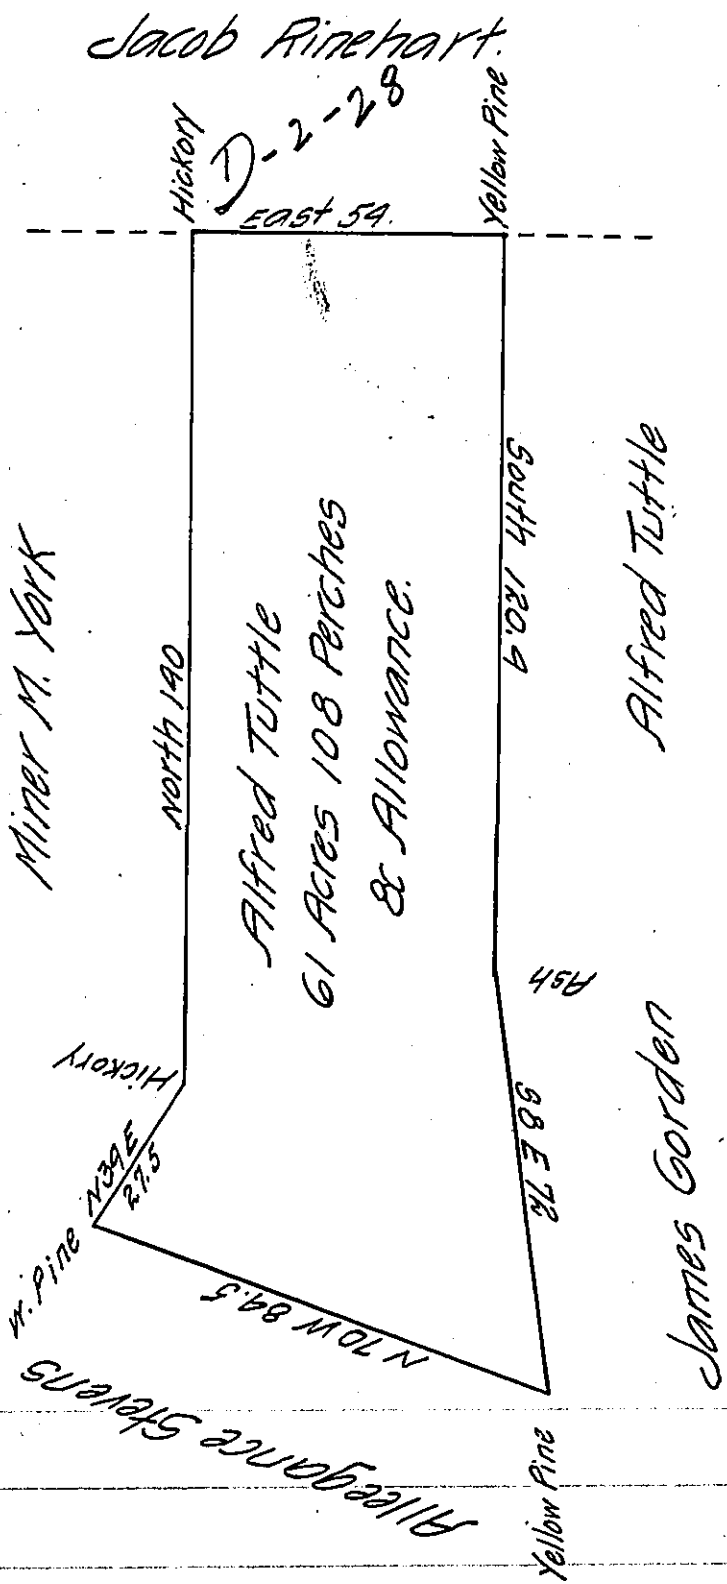 Jacob Rinehart.
D-2-28
Hickory
Yellow Pine
East 54.
Miner M. York
North 140
Alfred Tuttle
61 Acres 108 Perches
& Allowance.
South 120.4
Alfred Tuttle
Ash
Hickory
N34E
27.5
W. Pine
N70W 84.5
S8E 72
James Gorden
Alleegance Stevens
Yellow Pine